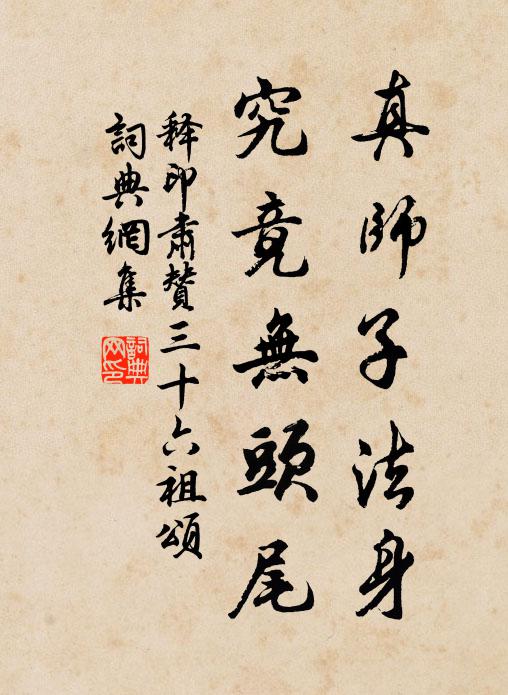 真師子法身
究竟無頭尾
釋印肅贊三十六祖頌
詞典網集
詞典網印